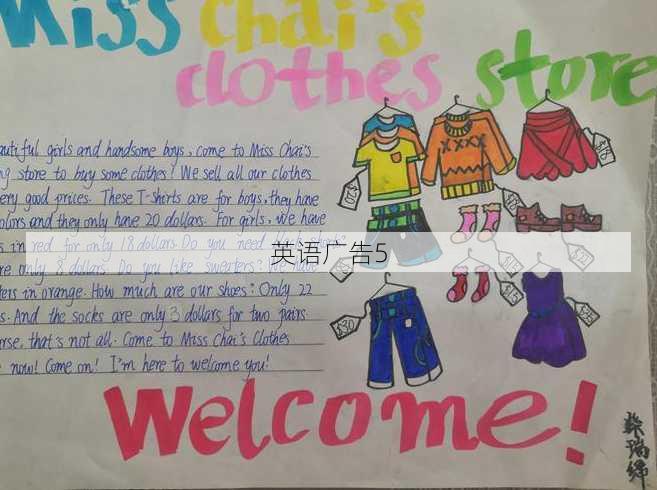 Miss Chai's
clothes store
autiful girls and handsome boys, come to Miss Chai's
ng store to buy some clothes! We sell all our clothes
ery good prices. These T-shirts are for boys, they have
olors and they only have 20 dollars. For girls, we have
s in red for only 18 dollars. Do you need
英语广告5
re only 8 dollars. Do you like sweaters? We have
ters in orange. How much are our shoes? Only 22
s. And the socks are only 3 dollars for two pairs
rse, that's not all. Come to Miss Chai's Clothes
now! Come on! I'm here to welcome you!
$20
$18
$30
$15
Welcome!
柴瑞绵